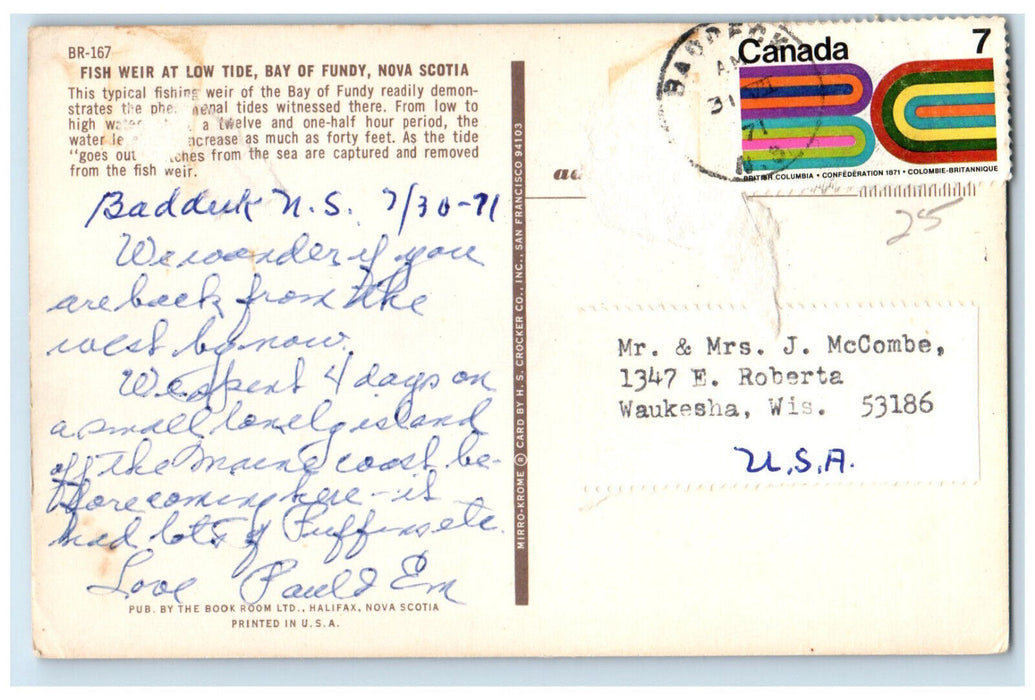 BR-167
FISH WEIR AT LOW TIDE, BAY OF FUNDY, NOVA SCOTIA
This typical fishing weir of the Bay of Fundy readily demon-
strates the phe enal tides witnessed there. From low to
high a twelve and one-half hour period, the
water le ncrease as much as forty feet. As the tide
"goes out" ches from the sea are captured and removed
from the fish weir.
Badduk N.S. 7/30-71
We wonder if you
are back from the
west by now.
We spent 4 days on
a small lonely island
off the Maine coast be-
fore coming here - it
had lots of Puffins etc.
Love Paul & Em
PUB. BY THE BOOK ROOM LTD., HALIFAX, NOVA SCOTIA
PRINTED IN U.S.A.
MIRRO-KROME ® CARD BY H. S. CROCKER CO., INC., SAN FRANCISCO 94103
BADDECK
AM
31 VII
71
N.S.
Canada 7
BRITISH COLUMBIA • CONFEDERATION 1871 • COLOMBIE-BRITANNIQUE
25
Mr. & Mrs. J. McCombe,
1347 E. Roberta
Waukesha, Wis. 53186
U.S.A.